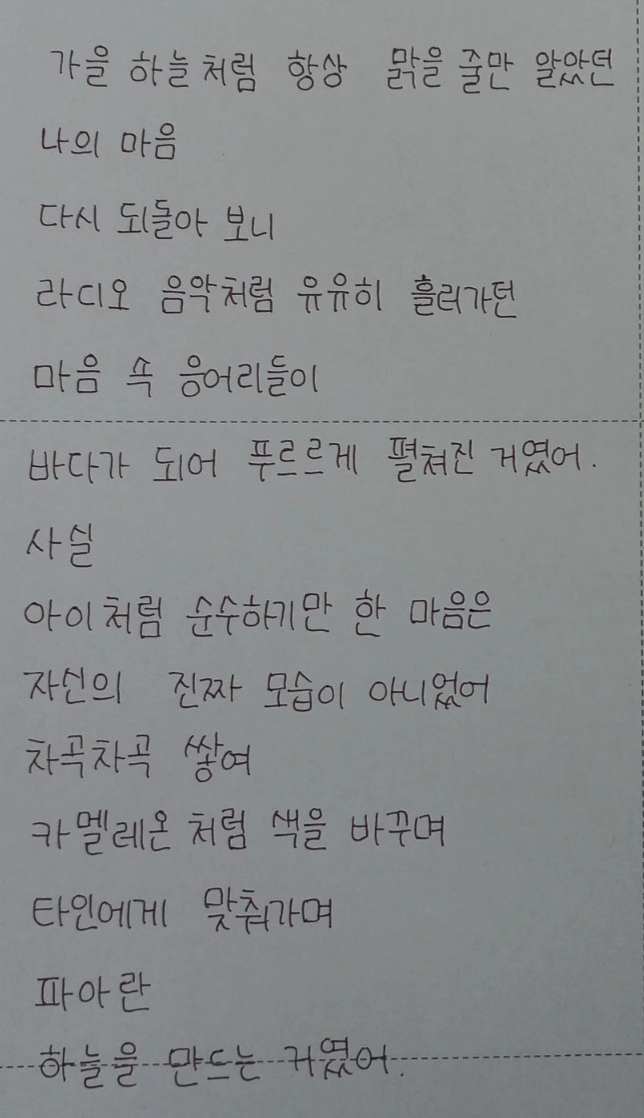 가을 하늘처럼 항상 맑을 줄만 알았던
나의 마음
다시 되돌아 보니
라디오 음악처럼 유유히 흘러가던
마음 속 응어리들이
바다가 되어 푸르르게 펼쳐진 거였어.
사실
아이처럼 순수하기만 한 마음은
자신의 진짜 모습이 아니었어
차곡차곡 쌓여
카멜레온처럼 색을 바꾸며
타인에게 맞춰가며
파아란
하늘을 만드는 거였어.